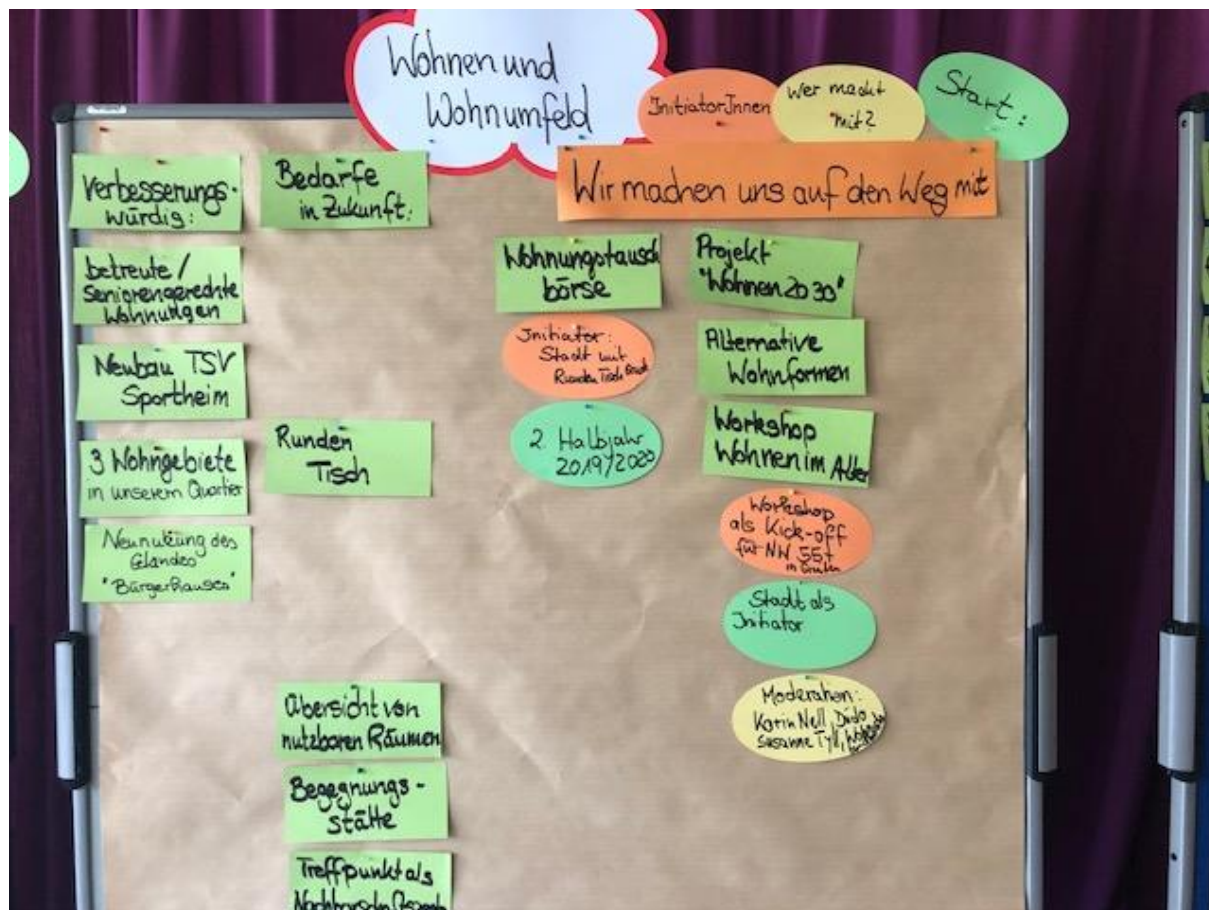 Wohnen und
Wohnumfeld
InitiatorInnen
Wer macht
mit?
Start:
Wir machen uns auf den Weg mit
Verbesserungs-
würdig:
betreute/
Seniorengerechte
Wohnungen
Neubau TSV
Sportheim
3 Wohngebiete
in unserem Quartier
Neunutzung des
"Bürgerhauses"
Bedarfe
in Zukunft:
Runden
Tisch
Übersicht von
nutzbaren Räumen
Begegnungs-
stätte
Treffpunkt als
Wohnungstausch
börse
Initiator:
Stadt mit
Runden Tisch
2. Halbjahr
2019/2020
Projekt
"Wohnen 2030"
Alternative
Wohnformen
Workshop
Wohnen im Alter
Workshop
als Kick-off
für NW 55+
Stadt als
Initiator
Moderation:
Karin Nell,
Susanne Tyll,